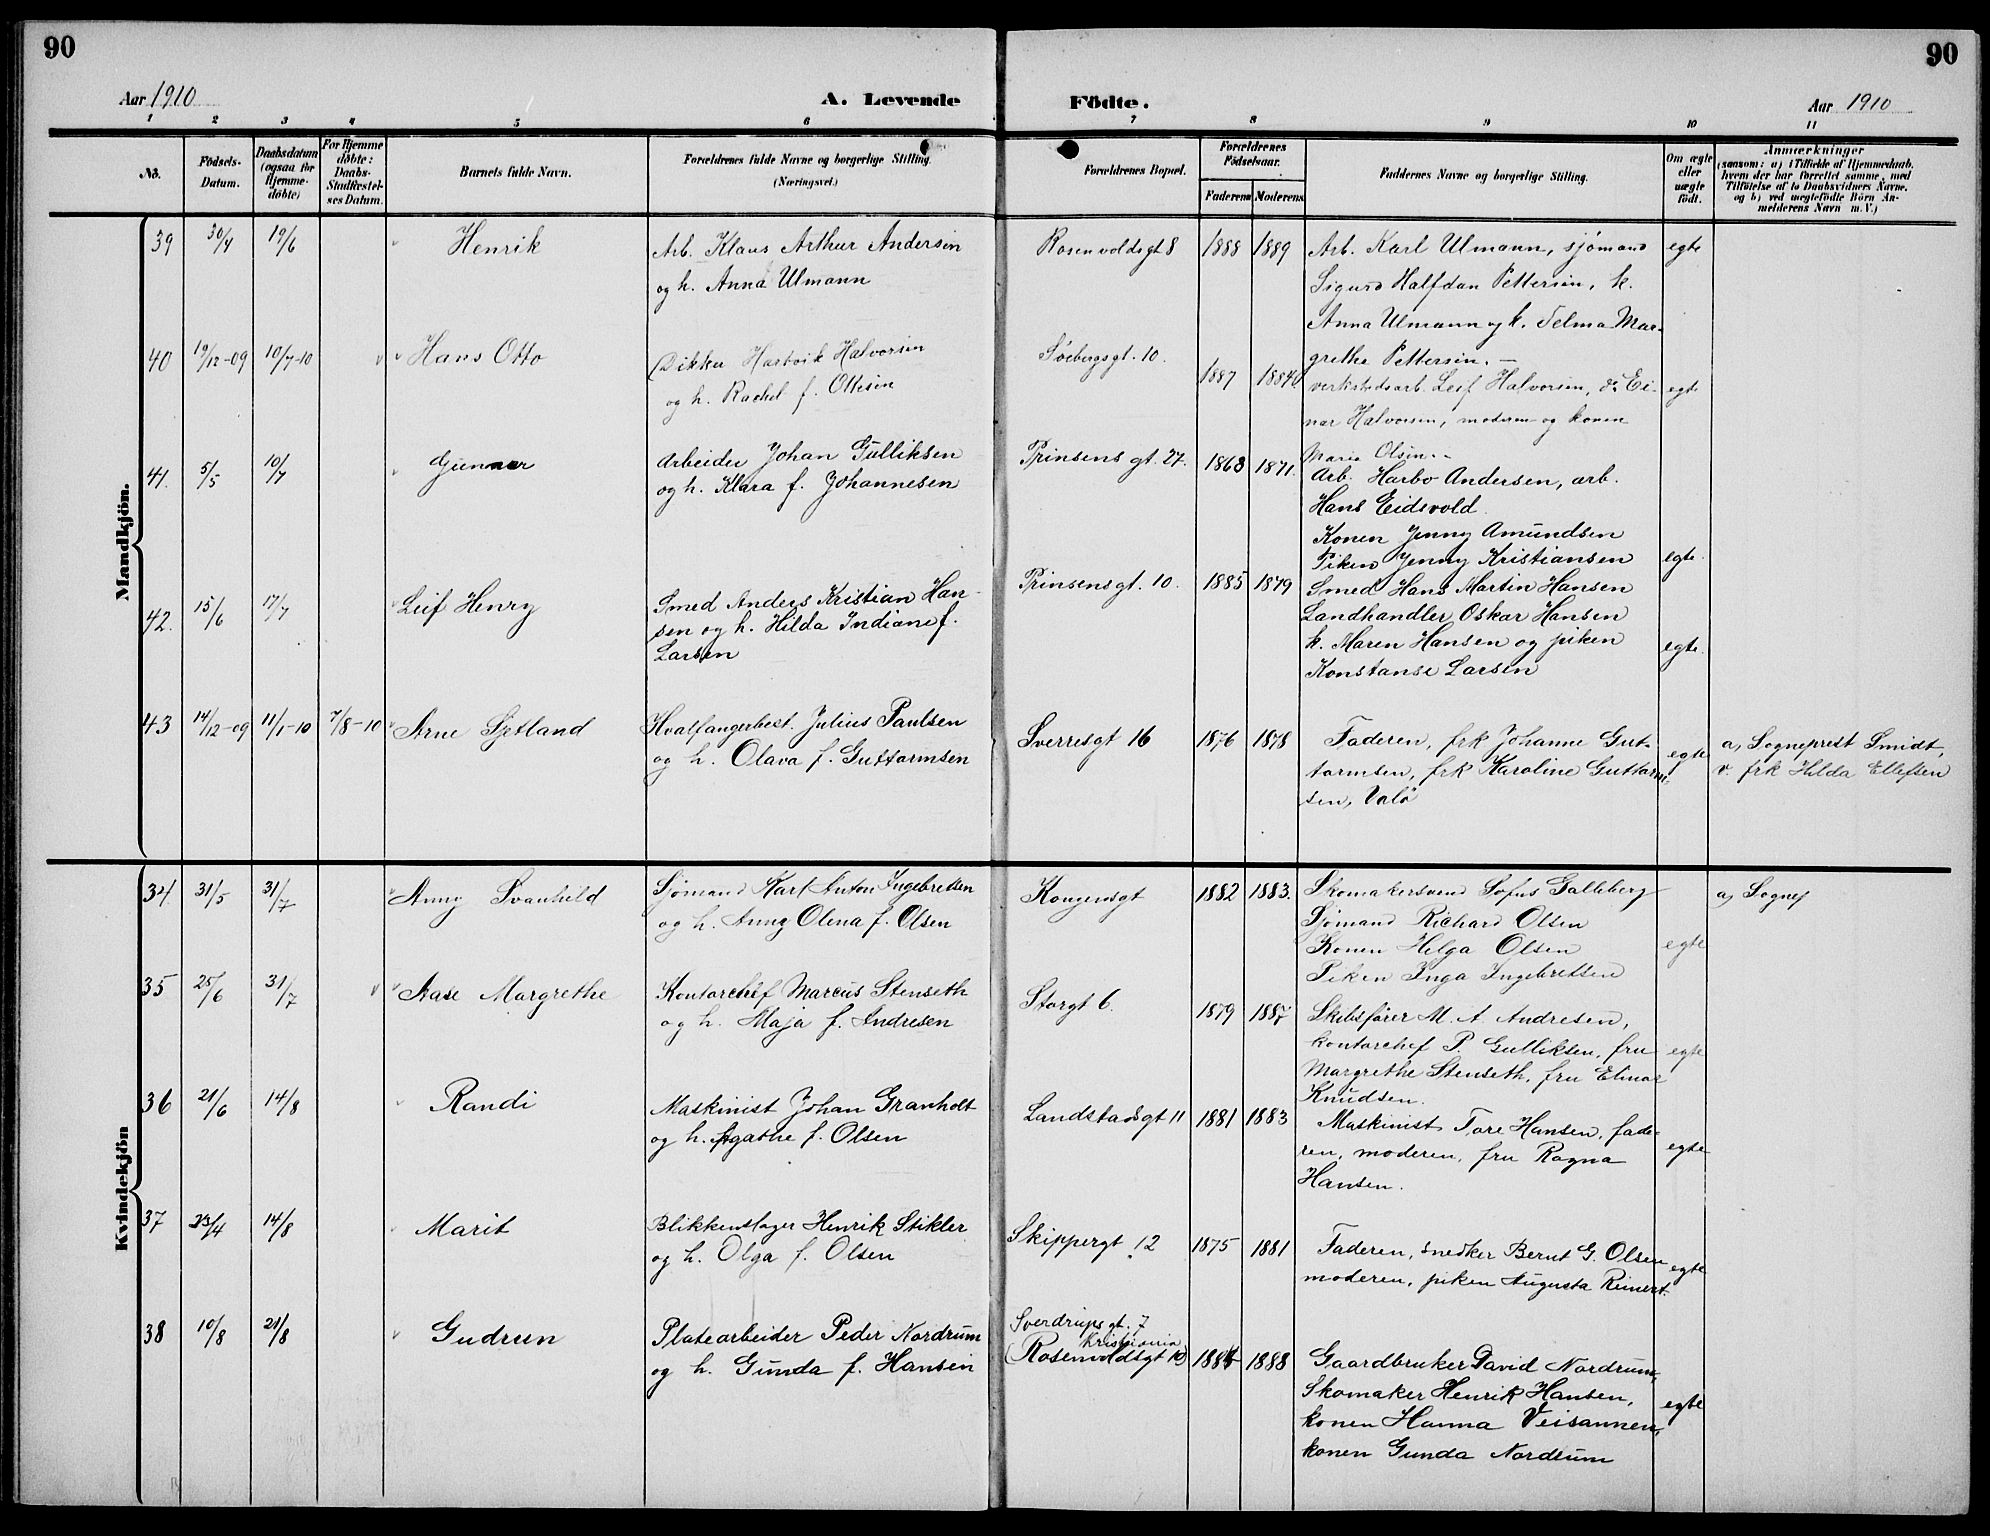 90
90
Aar 1910
A. Levende Födte.
Aar 1910
1 2 3 4 5 6 7 8 9 10 11
No.
Födsels-Datum.
Daabsdatum (ogsaa for Hjemme-döbte)
For Hjemme döbte: Daabs-Stadfæstel-ses Datum.
Barnets fulde Navn.
Forældrenes fulde Navne og borgerlige Stilling.
(Næringsvei.)
Forældrenes Bopæl.
Forældrenes Födselsaar.
Faderens
Moderens
Faddernes Navne og borgerlige Stilling.
Om ægte eller uægte födt.
Anmærkninger
(saasom: a) i Tilfælde af Hjemmedaab,
hvem der har forrettet samme, med
Tilföielse af to Daabsvidners Navne.
og b) ved uægtefödte Börn An-
melderens Navn m. V.)
Mandkjön.
39 30/4 19/6 Henrik
Arb. Klaus Arthur Andersen
og h. Anna Ulmann
Rosenvoldsgt 8 1888 1889
Arb. Karl Ulmann, sjömand
Sigurd Halfdan Pettersen, k.
Anna Ulmann og k. Selma Mar-
grethe Pettersen.-
egte
40 19/12-09 10/7-10 Hans Otto
Dikku Hartvik Halvorsen
og h. Rachel f. Ottesen
Söebergsgt. 10. 1887 1884
verkstedsarb. Leif Halvorsen, do Ei-
nar Halvorsen, moderen og konen
Maria Olsen.-
egte
41. 5/5 10/7 Gunnar
Arbeider Johan Gulliksen
og h. Klara f. Johannesen
Prinsens gt. 27. 1868 1871.
Arb. Harbo Andersen, arb.
Hans Eidsvold.
Konen Jenny Amundsen
Piken Jenny Kristiansen
egte.
42. 15/6 17/7 Leif Henry
Smed Anders Kristian Han-
sen og h. Hilda Indiane f.
Larsen
Prinsensgt. 10. 1885 1879
Smed Hans Martin Hansen
Landhandler Oskar Hansen
k. Maren Hansen og piken
Konstanse Larsen
egte.
43 14/12-09 11/1-10 7/8-10 Arne Sjetland
Hvalfangerbest. Julius Paulsen
og h. Olava f. Guttormsen
Sverresgt 16 1876 1878
Faderen, frk Johanne Gut-
tormsen, frk Karoline Guttorm-
sen, Valö
egte
a, Sogneprest Smidt,
v. frk Hilda Ellefsen
Kvindekjön
34. 31/5 31/7 Anny Svanhild
Sjömand Karl Anton Ingebretsen
og h. Anny Olena f. Olsen
Kongensgt 1882 1883.
Skomakersvend Sofus Galleberg
Sjömand Richard Olsen
Konen Helga Olsen
Piken Inga Ingebretsen
egte
a, Sognep
35 25/6 31/7 Aase Margrethe
Kontorchef Marcus Stenseth
og h. Maja f. Andresen
Storgt 6. 1879 1887
Skibsförer M. A. Andresen,
kontorchef P. Gulliksen, fru
Margrethe Stenseth, fru Elinar
Knudsen.
egte
36 21/6 14/8 Randi
Maskinist Johan Granholt
og h. Agathe f. Olsen
Landstadsgt 11 1881 1883
Maskinist Tore Hansen, fade-
ren, moderen, fru Ragna
Hansen.
egte
37 23/4 14/8 Marit
Blikkenslager Henrik Stikler
og h. Olga f. Olsen
Skippergt 12 1875 1881
Faderen, snedker Bernt G. Olsen
moderen, piken Augusta Reinert.
egte
38 10/8 21/8 Gudrun
Platearbeider Peder Nordrum
og h. Gunda f. Hansen
Sverdrupsgt. 7
Kristiania
(Rosenvoldsgt 10) 1884 1888
Gaardbruker David Nordrum,
Skomaker Henrik Hansen,
konen Hanna Veisannen,
konen Gunda Nordrum
egte